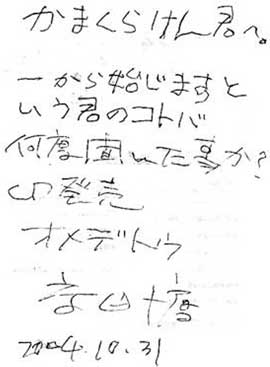 かまくらけん君へ。
一から始じますと
いう君のコトバ
何度聞いた事か?
CD発売
オメデトウ
高田渡
2004.10.31